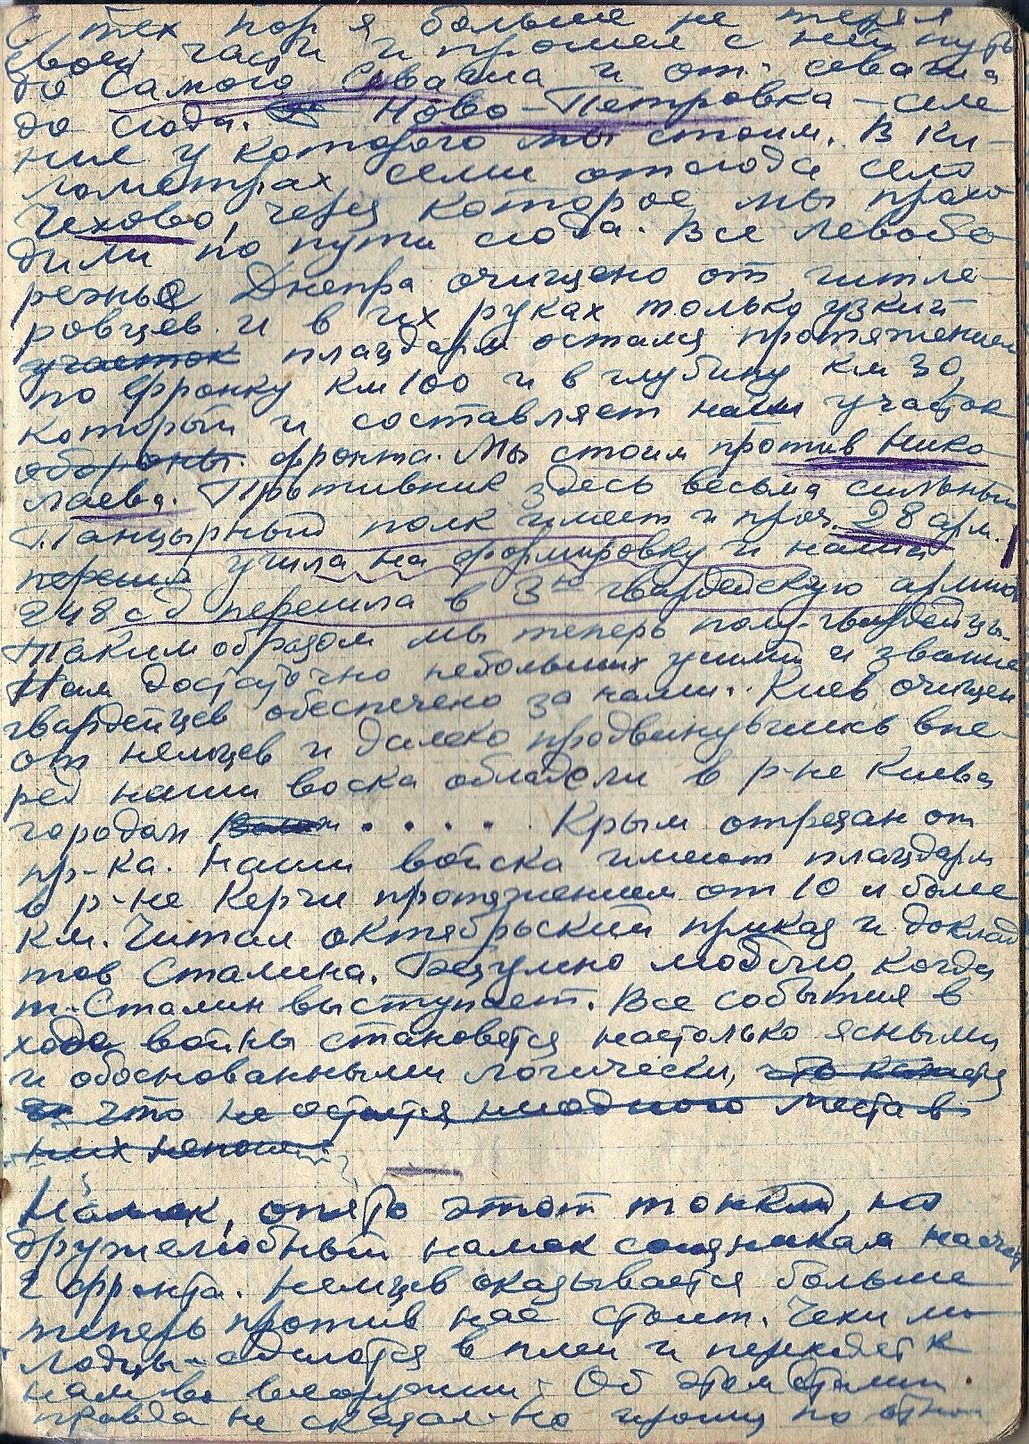 С тех пор я больше не терял
своей части и прошел с ней путь
до самого Сиваша и от Сиваша
до сюда. Ново-Петровка - селе
ние у которого мы стоим. В ки-
лометрах семи отсюда село
Чехово, через которое мы прохо
дили по пути сюда. Все левобе
режье Днепра очищено от гитле-
ровцев и в их руках только узкий
участок плацдарм остался протяжением
по фронку км 100 и в глубину км 30,
который и составляет наш участок
обороны. фронта. Мы стоим против Нико
лаева. Противник здесь весьма сильный
Танцырный полк имеет и проч. 28 арм.
перешл ушла на формировку и наша
248 сд перешла в 3ю гвардейскую армию
Таким образом мы теперь полу-гвардейцы.
Нам достаточно небольших усилий и звание
гвардейцев обеспечено за нами. Киев очищен
от немцев и далеко продвинувшись впе-
ред наши воска обладели в р-не Киева
городам . . . . . Крым отрезан от
пр-ка. Наши войска имеют плацдарм
в р-не Керчи протяжением от 10 и более
км. Читал октябрьский приказ и доклад
тов Сталина. Безумно люблю, когда
т. Сталин выступает. Все события в
ходе войны становятся настолько ясными
и обоснованными логически, что кажется
что не остается ни одного места в
них
Намек, опять этот тонкий, но
дружелюбный намек союзникам насчет
2 фронта. Немцев оказывается больше
теперь против нас стоит. Чехи мо
лодцы - сдаются в плен и перходят к
нам во всеоружии. Об этом Сталин
правда не сказал - но прошу по